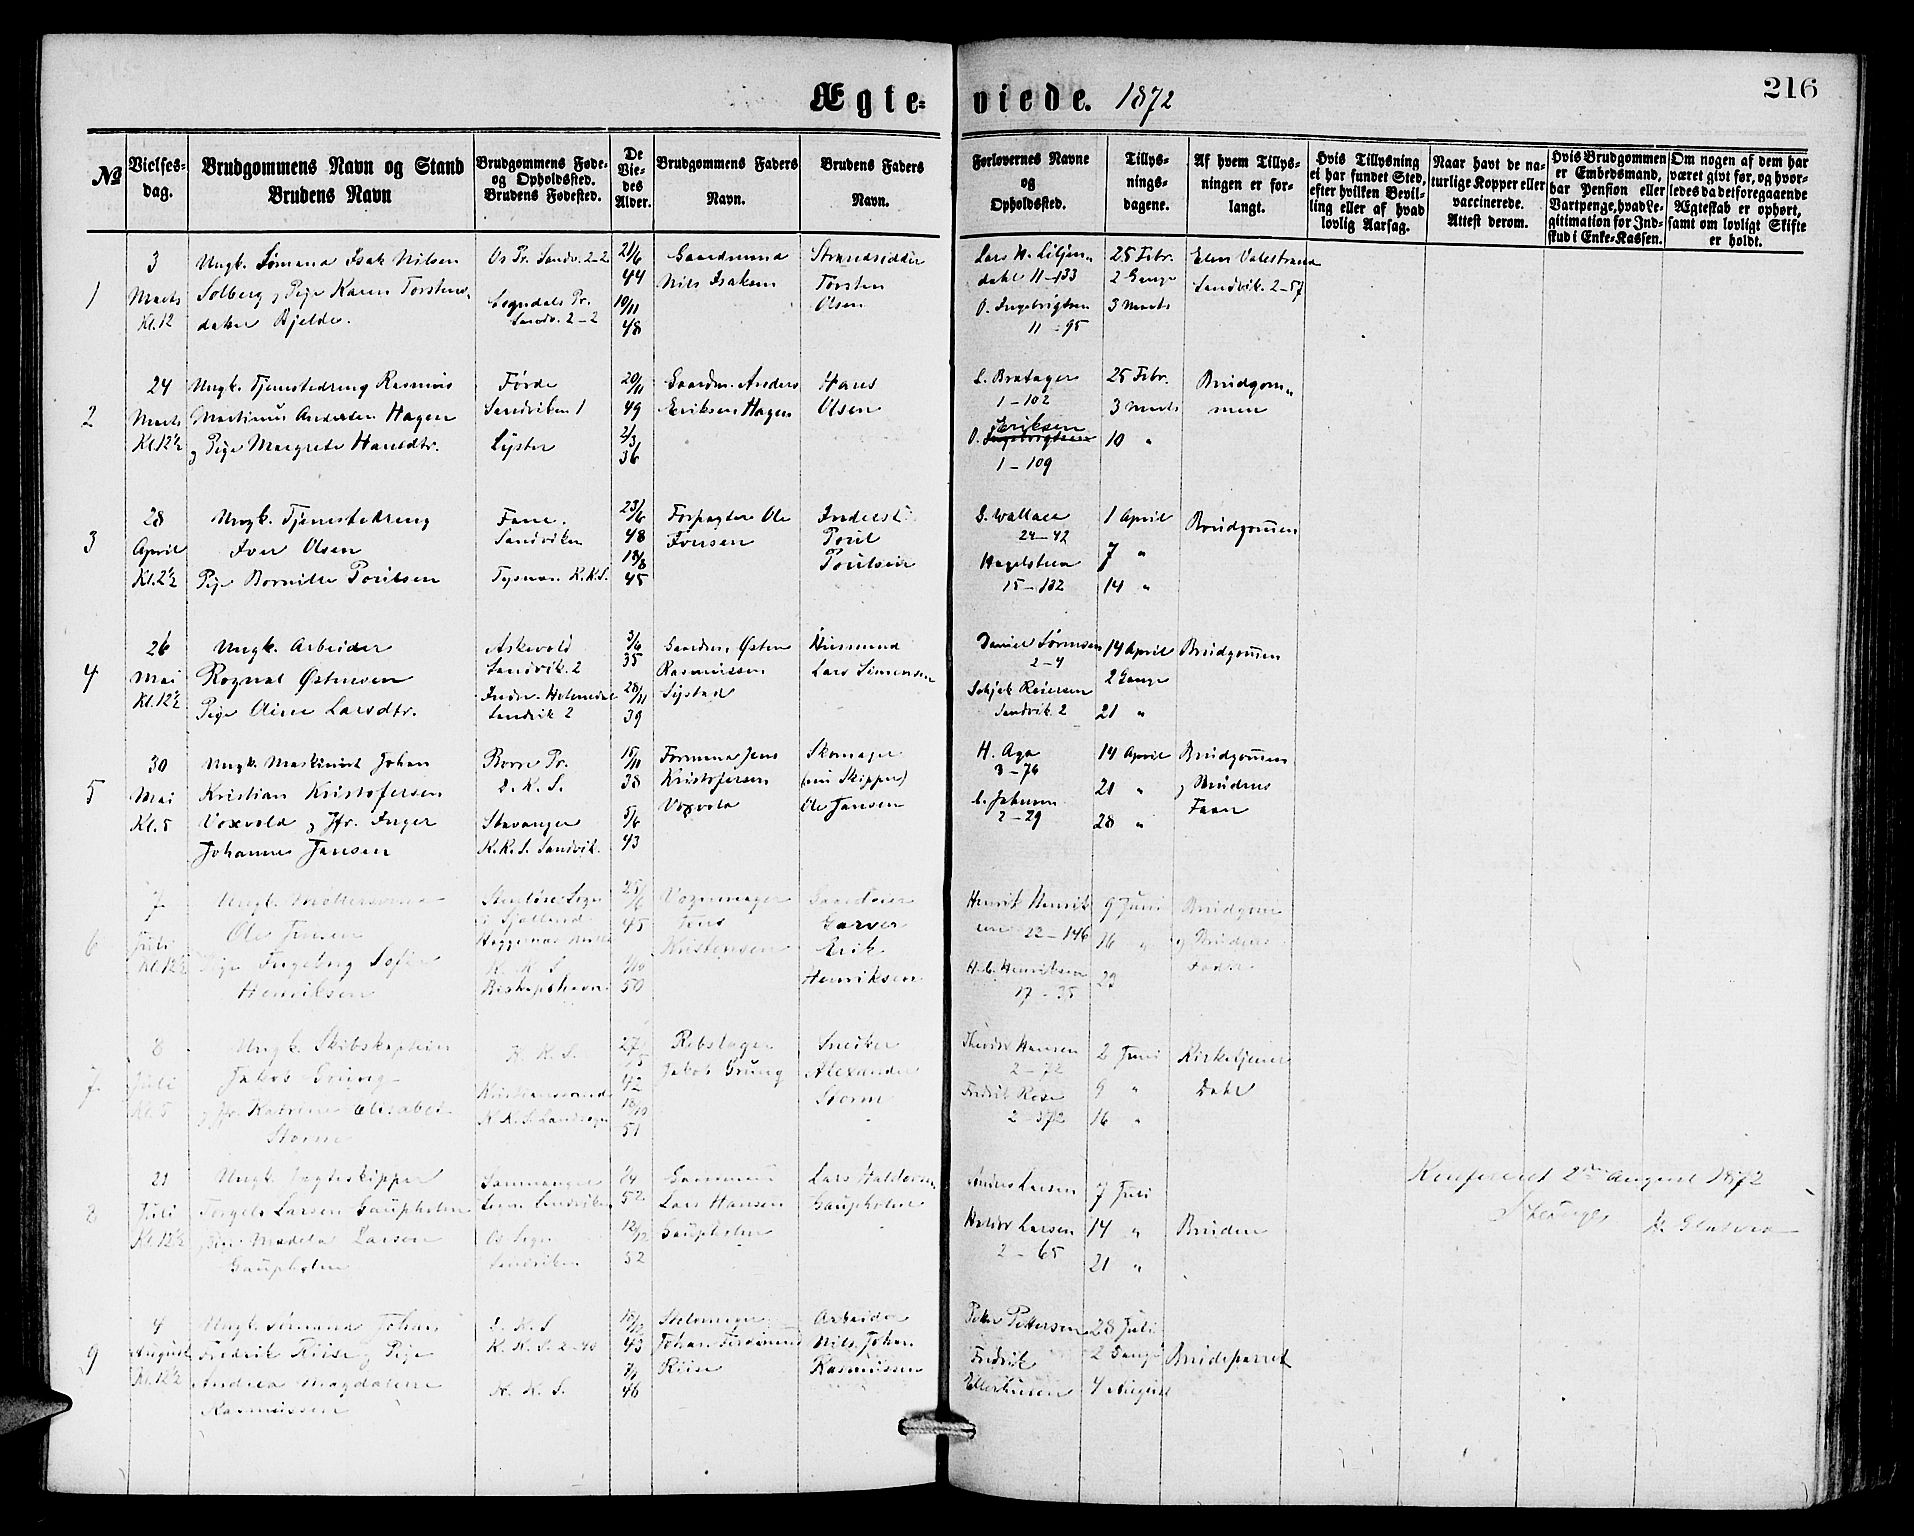 216
Ægte= viede. 1872
№
Vielses-
dag.
Brudgommens Navn og Stand
Brudens Navn
Brudgommens Føde-
og Opholdssted.
Brudens Fødested.
De
Vie-
des
Alder.
Brudgommens Faders
Navn.
Brudens Faders
Navn.
Forlovernes Navne
og
Opholdssted.
Tillys-
nings-
dagene.
Af hvem Tillys-
ningen er for-
langt.
Hvis Tillysning
ei har fundet Sted,
efter hvilken Bevil-
ling eller af hvad
lovlig Aarsag.
Naar havt de na-
turlige Kopper eller
vaccinerede.
Attest derom.
Hvis Brudgommen
er Embedsmand,
har Pension eller
Vartpenge, hvad Le-
gitimation for Ind-
skud i Enke-Kassen.
Om nogen af dem har
været givt før, og hvor-
ledes da det foregaaende
Ægteskab er ophørt,
samt om lovligt Skifte
er holdt.
1
3
Marts
Kl. 12
Ungk. Sømand Isak Nilsen
Solberg og Pige Karen Torstens-
datter Bjelde.
Os Pr. Sandv. 2-2
Sogndals Pr.
Sandv. 2-2
21/6
44
10/11
48
Gaardmand
Nils Isaksen
Strandsidder
Torsten
Olsen
Lars H. Liljen-
dahl 11-133
O. Ingebrigtsen
11-95
25 Febr.
2 Gange
3 Marts
Elen Valestrand
Sandvik. 2-57
2
24
Marts
Kl. 12½
Ungk. Tjenestedreng Rasmus
Martinus Andersen Hagen
og Pige Margrete Hansdtr.
Førde
Sandviken 1
Lyster
20/11
49
2/3
36
Gaardm. Anders
Eriksen Hagen
Hans
Olsen
L. Bratager
1-102
Eriksen
O. Ingebrigtsen
1-109
25 Febr.
3 Marts
10 "
Brudgom-
men
3
28
April
Kl. 2½
Ungk. Tjenestedreng
Iver Olsen
Pige Bornille Poulsen
Fane.
Sandviken
Tysnes. K.K.S.
23/6
48
18/8
45
Forpagter Ole
Iversen
Inderst
Poul
Poulsen
S. Wallace
24-42
Hagelsteen
15-132
1 April
7 "
14 "
Brudgommen
4
26
Mai
Kl. 12½
Ungk. Arbeider
Rognal Østensen
Pige Oline Larsdtr.
Askevold
Sandvik. 2
Indre Holmedal
Sandvik 2
3/6
35
28/11
39
Gaardm. Østen
Rasmussen
Systad
Husmand
Lars Simensen
Daniel Sørensen
2-4
Schjak Reiersen
Sandvik. 2
14 April
2 Gange
21 "
Brudgommen
5
30
Mai
Kl. 5
Ungk. Maskinist Johan
Kristian Kristofersen
Voxvold og Jfr. Inger
Johanne Jansen
Borre Pr.
D. K. S.
Stavanger
K.K.S. Sandvik.
15/11
38
5/6
43
Formand Jens
Kristofersen
Voxvold
Skomager
(nu Skipper)
Ole Jansen
H. Aga
3-76
C. Johnsen
2-29
14 April
21 "
28 "
Brudgommen
og Brudens
Faer
6
7
Juli
Kl. 12½
Ungk. Møllersvend
Ole Jensen
Pige Ingeborg Sofie
Henriksen
Stenløse Sogn
i Sjælland
K. K. S.
Biskopshavn
25/6
45
50
Vognmager
Jens
Kristensen
Gaardeier
Garver
Erik
Henriksen
Henrik Henrik-
sen 22-146
H.C. Henriksen
17-35
9 Juni
16 "
23
Brudgom
og Brudens
Fader
7
8
Juli
Kl. 5
Ungk. Skibskaptein
Jakob Grung
og Jfr. Katrine Elisabet
Storm
K. K. S.
Kristianssund
42
18/10
51
Rebslager
Jakob Grung
Snedker
Alexander
Storm
Theodor Hansen
2-72
Fredrik Rose
2-372
2 Juni
9 "
16 "
Kirketjener
Dahl
8
21
Juli
Kl. 12½
Ungk. Jagteskipper
Torgels Larsen Gaupholm
og Pige Madela Larsen
Gaupholm
Samnanger
Os Sogn
Sandviken
52
12/12
52
Gaardmand
Lars Hansen
Gaupholm
Lars Haldorsen
Gaupholm
Anders Larsen
Haldor Larsen
2-65
7 Juli
14 "
21 "
Bruden
Konfereret 2den August 1872
9
4
August
Kl. 12½
Ungk. Sømand Johan
Fredrik Riise og Pige
Andrea Magdalene
Rasmussen
D. K. S
K. K. S. 2-40
K. K. S.
43
46
Johan Ferdinand
Riise
Arbeider
Nils Johan
Rasmussen
Peter Pettersen
Fredrik
Ellerhusen
28 Juli
2 Gange
4 August
Brudeparret